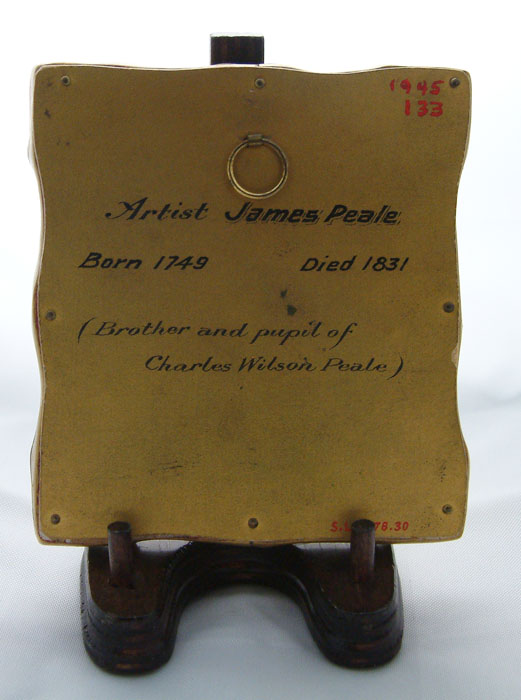 1945
133
Artist James Peale
Born 1749 Died 1831
(Brother and pupil of
Charles Wilson Peale)